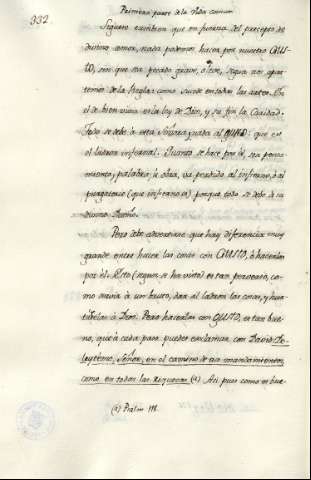 332
Primera parte de la Vida comun
Siguese tambien que en fuerza del precepto de
divino amor, nada podemos hacer por nuestro GUS-
TO, sin que sea pecado grave, ó leve, segun nos apar-
temos de la Regla: como sucede en todas las artes. En
el de bien vivir es la ley de Dios, y su fin la Caridad.
Todo se debe á esta Señora justa al GUSTO: que es
el ladron infernal. Quanto se hace por él, sea pensa-
miento, palabra, ú obra, va perdido al infierno, ó al
purgatorio (que infierno es) porque todo se debe á su
divino Dueño.
Pero debe advertirse que hay diferencia muy
grande entre hacer las cosas con GUSTO, ó hacerlas
por él. Esto (segun se ha visto) es tan perverso, co-
mo seria á un bruto, dar al ladron las cosas, y hur-
társelas á Dios. Pero hacerlas con GUSTO, es tan bue-
no, que á cada paso puedes exclamar con David: De-
leyteme, Señor, en el camino de tus mandamientos,
como en todas las riquezas. (a) Asi pues como es bue-
(a) Psalm 118.